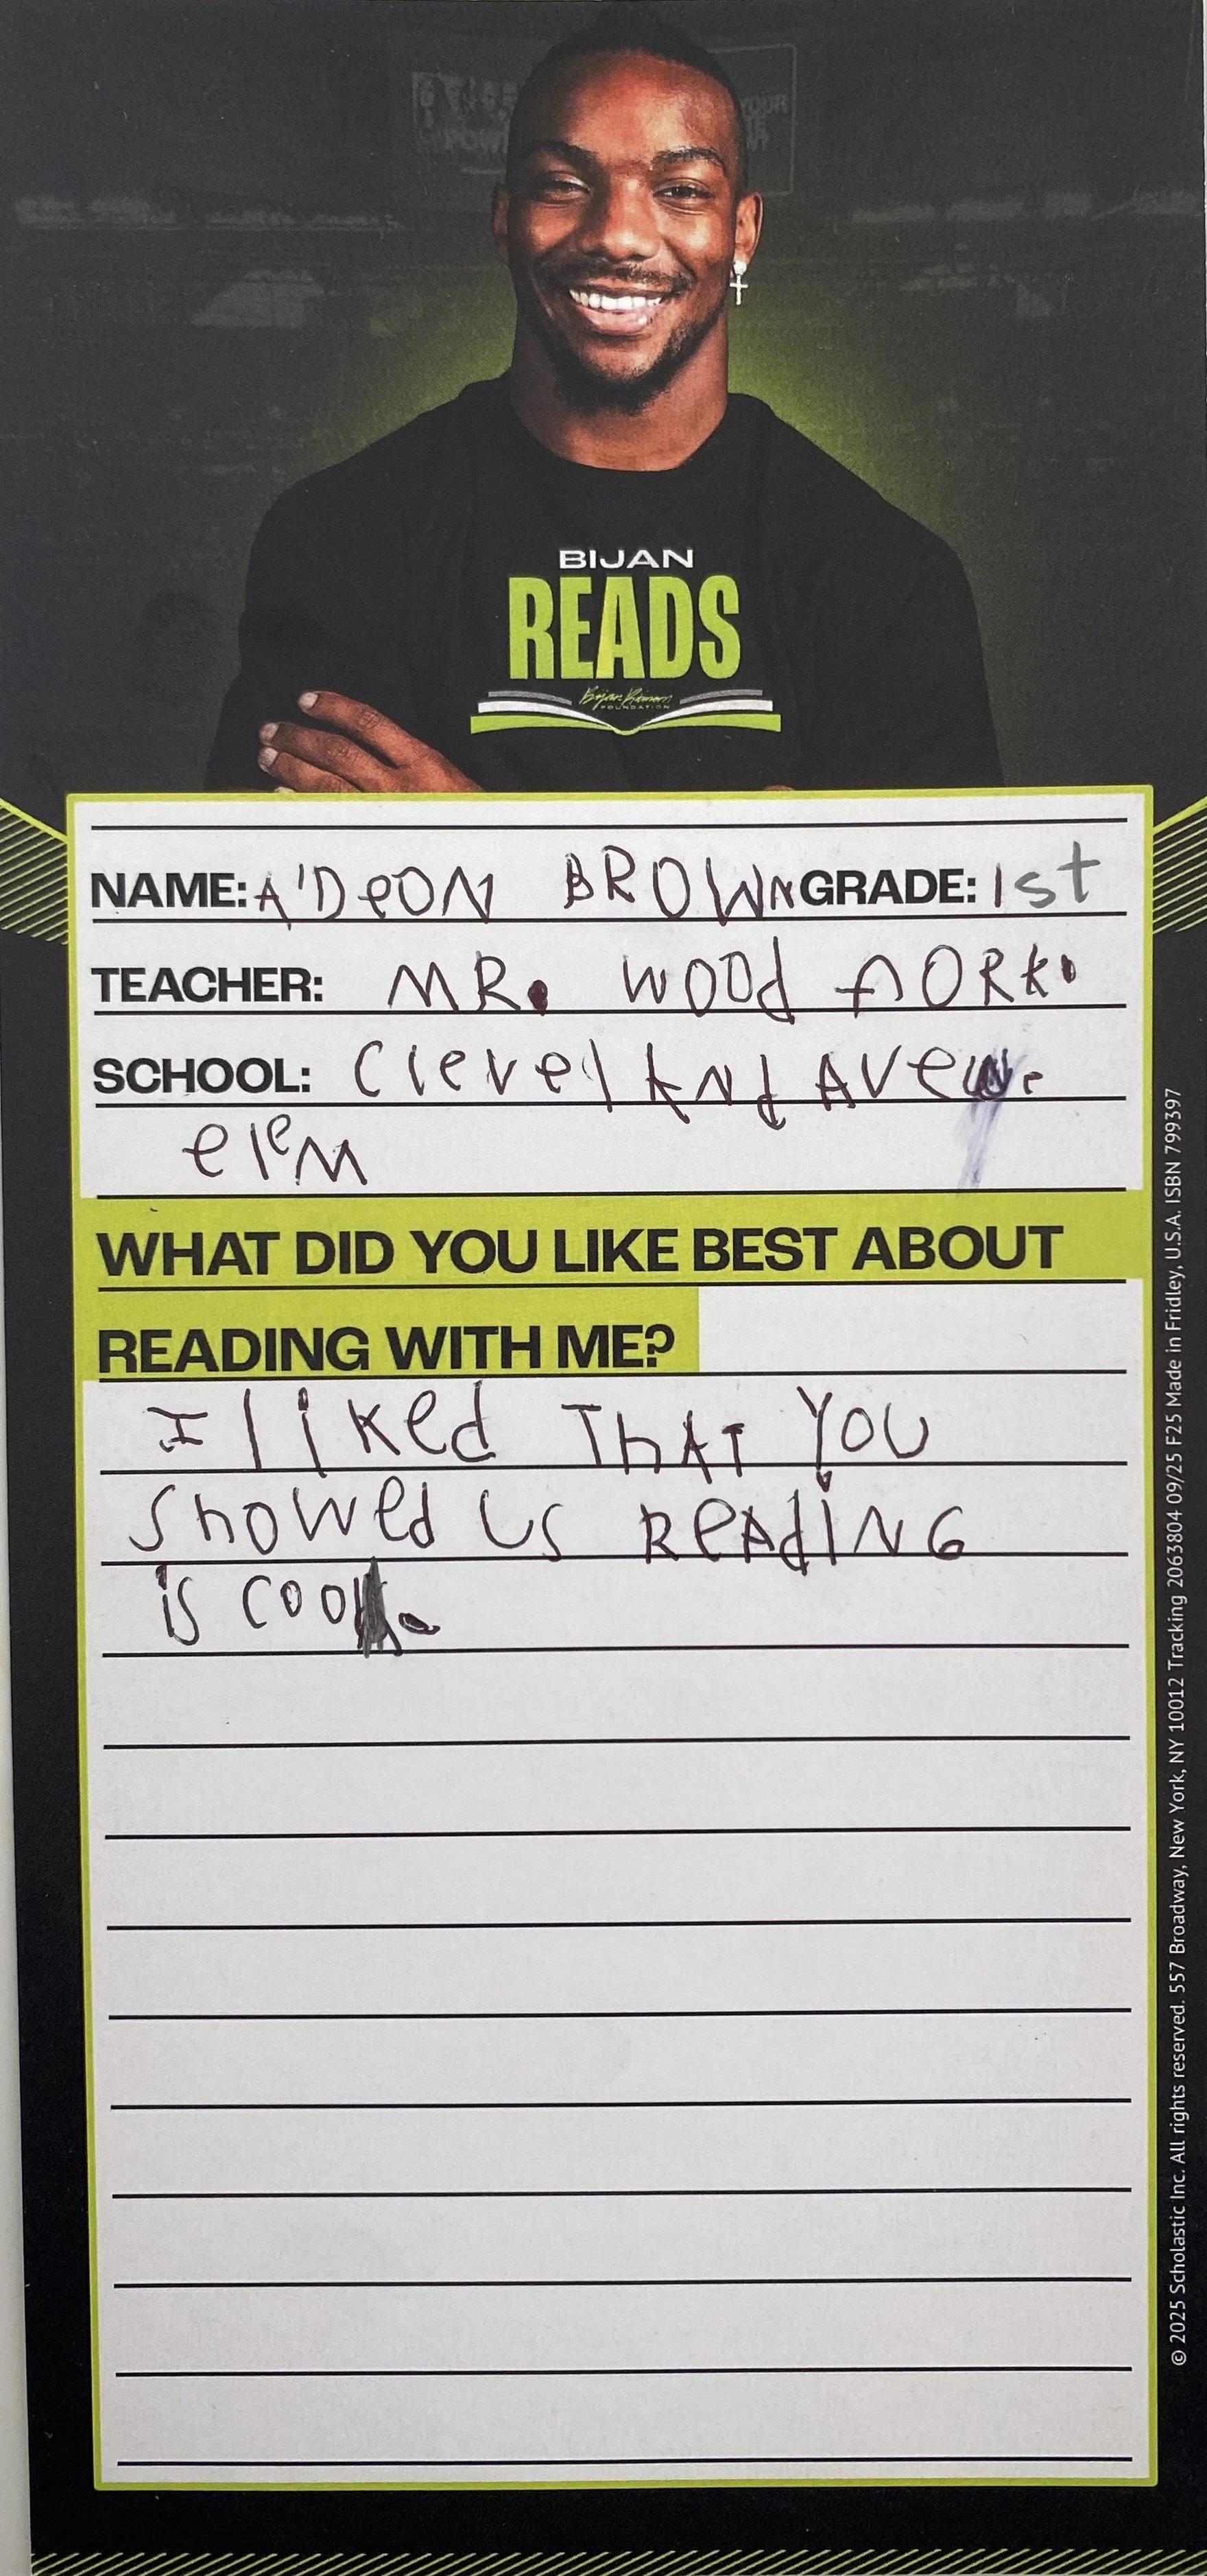 BIJAN
READS
Bijan Robinson
FOUNDATION
NAME: A'DeON BROWN GRADE: 1st
TEACHER: MR. wood
SCHOOL: Clevel ANd AVeue
elem
WHAT DID YOU LIKE BEST ABOUT
READING WITH ME?
I liked ThAT YOU
showed us ReAdiNG
is cool.
© 2025 Scholastic Inc. All rights reserved. 557 Broadway, New York, NY 10012 Tracking 2063804 09/25 F25 Made in Fridley, U.S.A. ISBN 799397